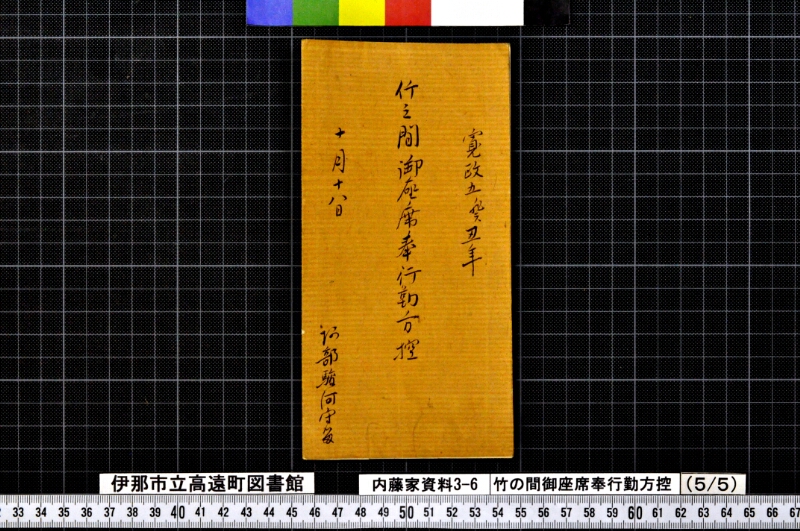 寛政五癸丑年
竹之間御座席奉行勤方控
十月十八日
阿部駿河守
伊那市立高遠町図書館
内藤家資料3-6
竹の間御座席奉行勤方控
(5/5)
33 34 35 36 37 38 39 40 41 42 43 44 45 46 47 48 49 50 51 52 53 54 55 56 57 58 59 60 61 62 63 64 65 66 67